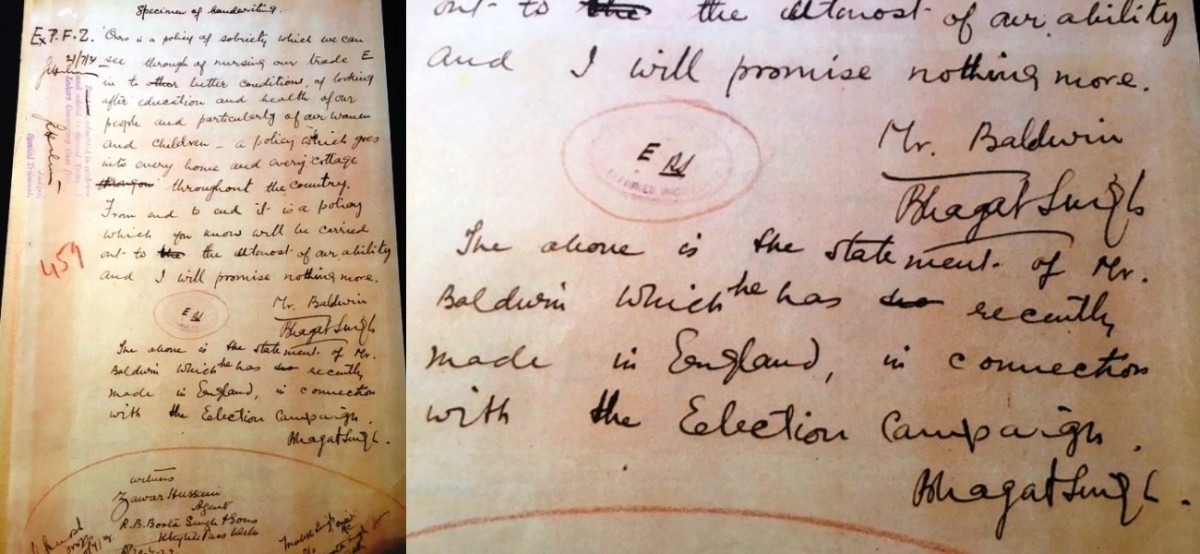 Specimen of handwriting.
Ex P.F.2. Ours is a policy of sobriety which we can
see through of nursing our trade E
in to other better conditions, of looking
after education and health of our
people and particularly of our women
and children - a policy which goes
into every home and every cottage
throughout the country.
From end to end it is a policy
which you know will be carried
out to the the utmost of our ability
and I will promise nothing more.
459
Mr. Baldwin
Bhagat Singh
The above is the statement of Mr.
Baldwin which he has recently
made in England, in connection
with the Eelection Campaign.
Bhagat Singh.
witness
Zawar Hussain
Agent
R.B. Boota Singh & Sons
out to the the utmost of our ability
and I will promise nothing more.
Mr. Baldwin
Bhagat Singh
The above is the statement of Mr.
Baldwin which he has recently
made in England, in connection
with the Eelection Campaign.
Bhagat Singh.